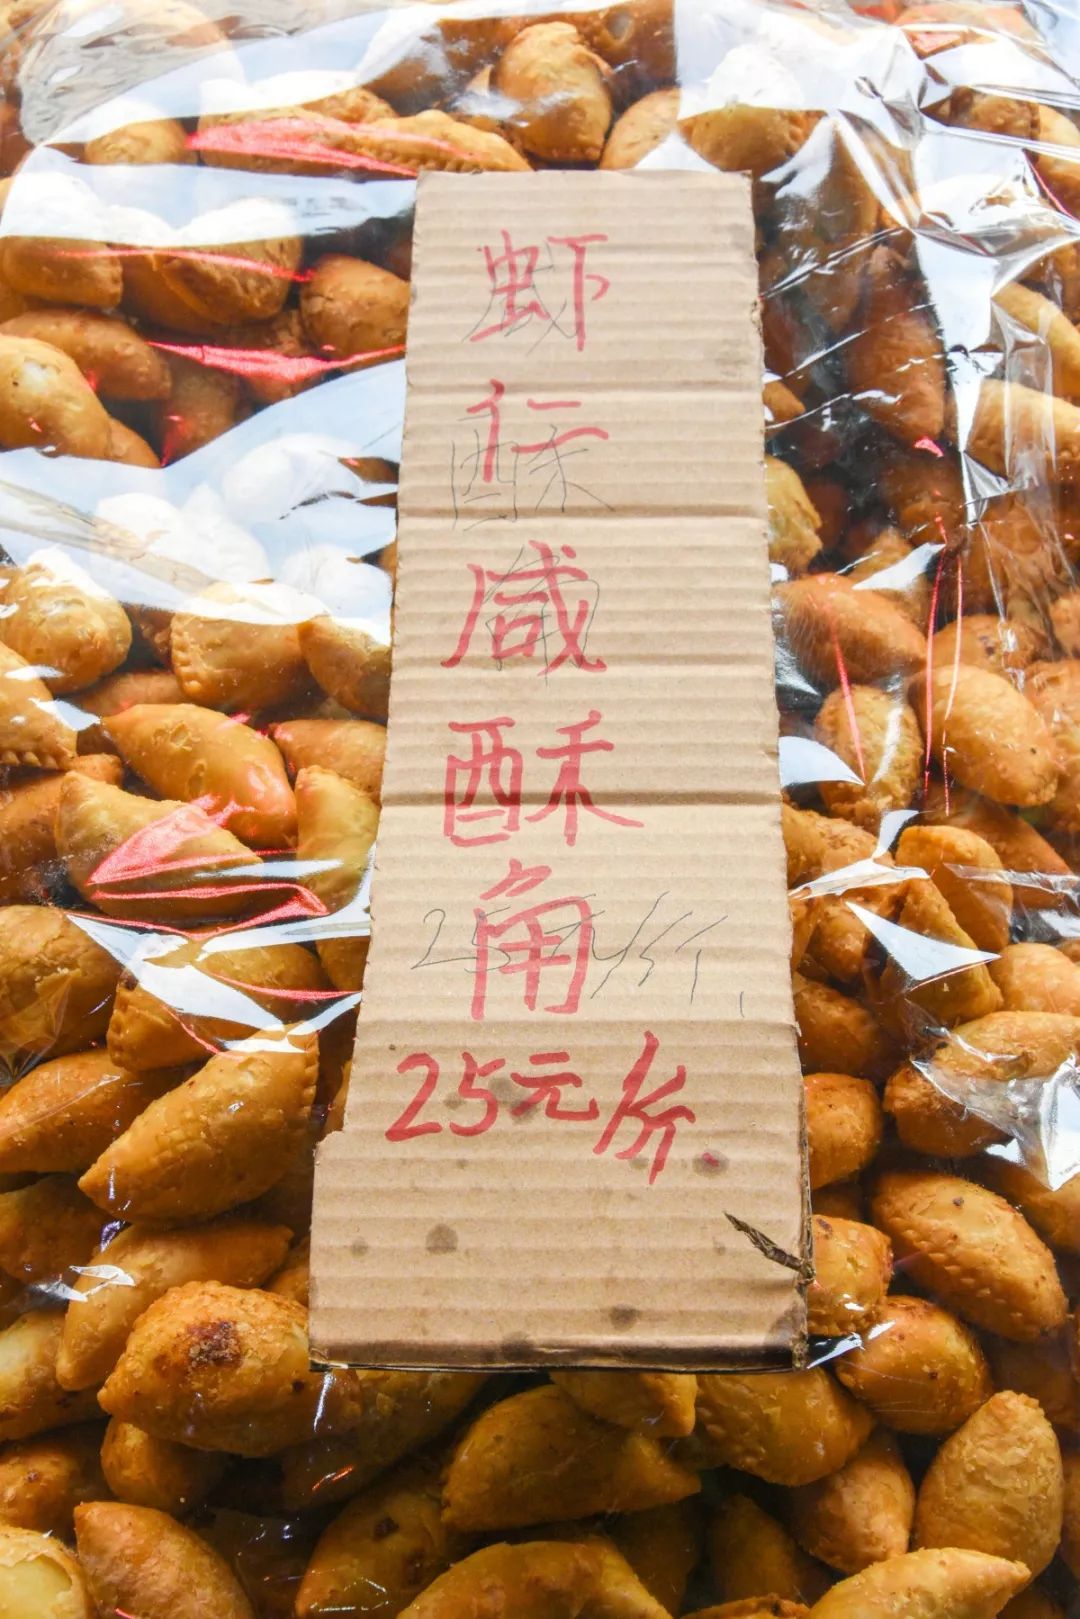 虾
仁
咸
酥
角
25元/斤.